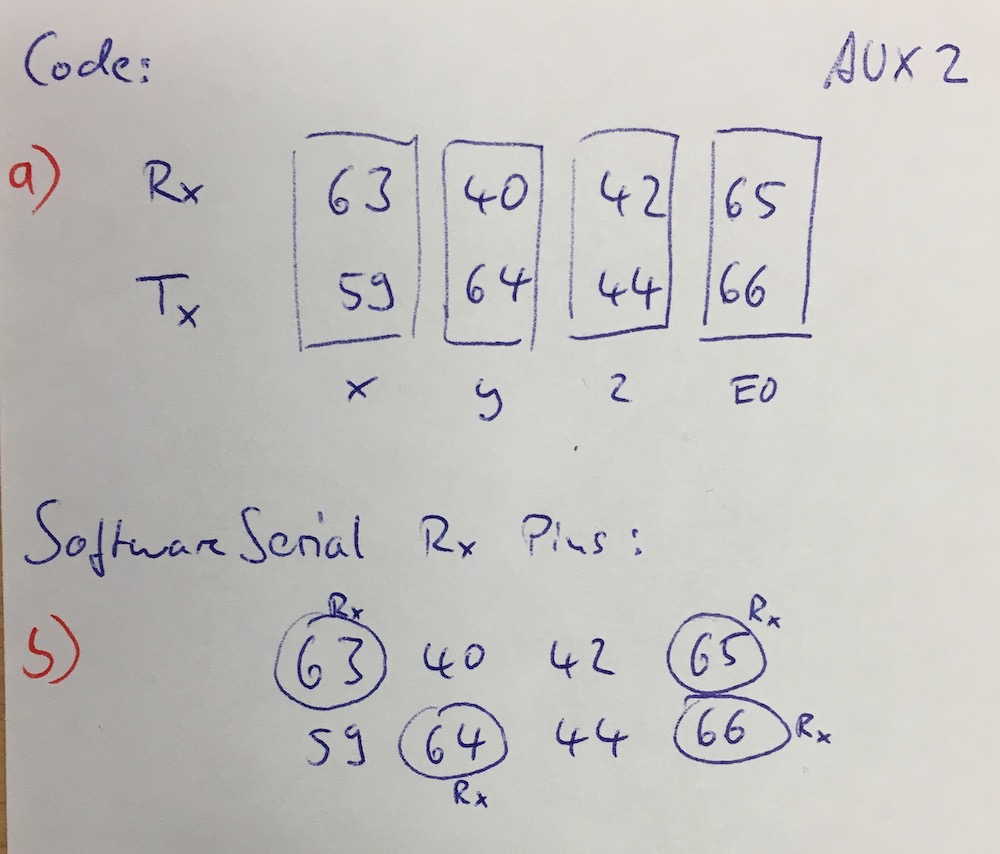 Code: AUX 2
a) Rx 63 40 42 65
Tx 59 64 44 66
x y z E0
Software Serial Rx Pins:
Rx Rx
b) 63 40 42 65
59 64 44 66 Rx
Rx